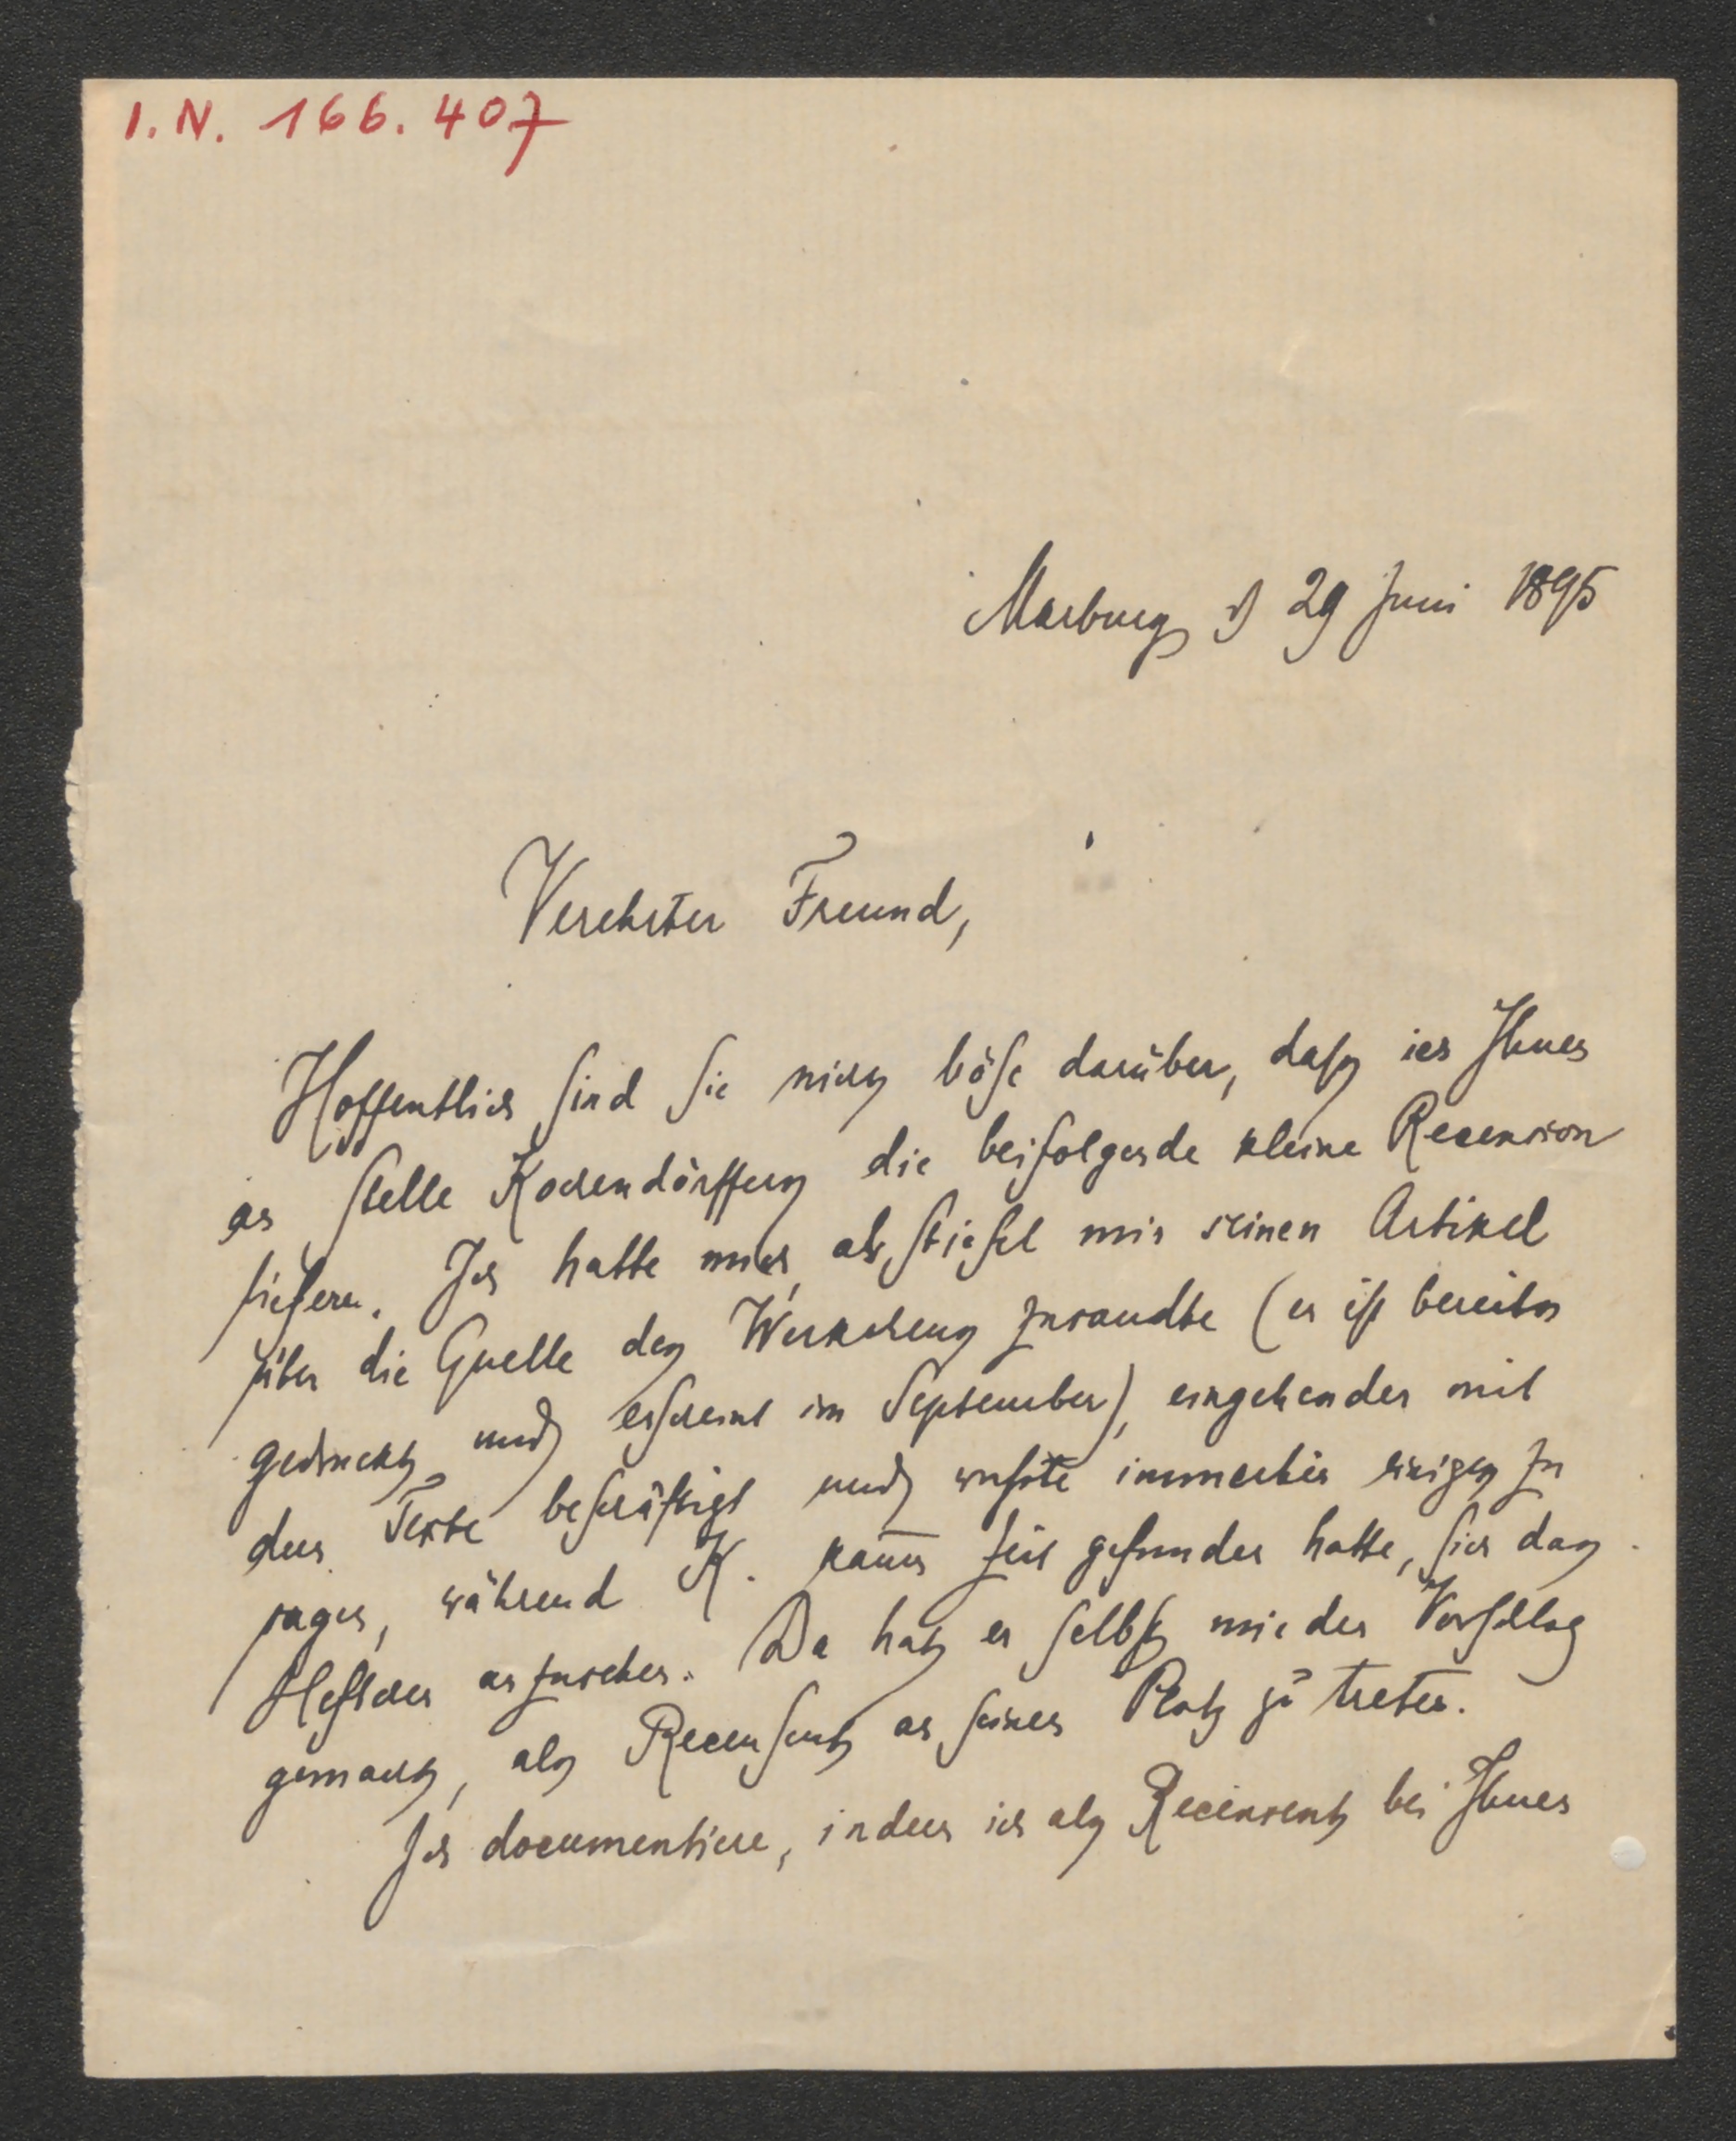 I. N. 166.407
Marburg d 29 Juni 1895
Verehrter Freund,
Hoffentlich sind Sie nicht böse darüber, dass ich Ihnen
an Stelle Kochendörffers die beifolgende kleine Recension
liefere. Ich hatte mich, als Stiefel mir seinen Artikel
über die Quelle des zusandte (er ist bereits
gedruckt und erscheint im September), eingehender mit
dem Texte beschäftigt und wusste immerhin einiges zu
sagen, während K. kaum Zeit gefunden hatte, sich das
Heftchen anzusehen. Da hat er selbst mir den Vorschlag
gemacht, als Recensent an seinen Platz zu treten.
Ich documentiere, indem ich als Recensent bei Ihnen